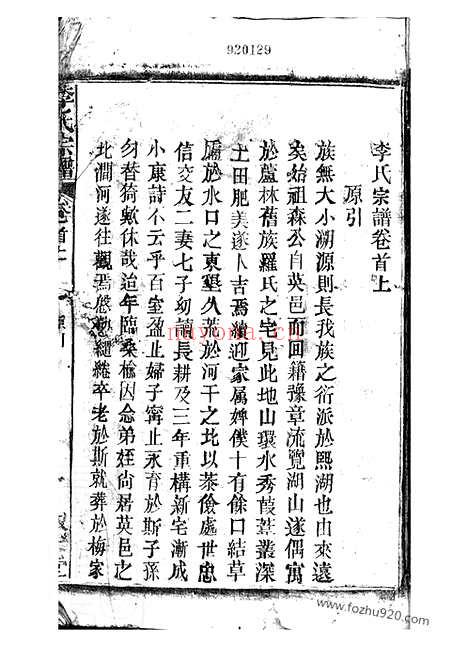 920129
李氏宗譜卷首上
原引
族無大小溯源則長我族之衍派於熙湖也由來遠
矣始祖森公自英邑而回籍豫章流覽湖山遂偶寓
於蘆林舊族羅氏之宅見此地山環水秀葭葦叢深
土田肥美遂卜吉焉續迎家属婢僕十有餘口結草
廬於水口之東墾久荒於河干之北以恭儉處世忠
信交友二妻七子幼讀長耕及三年重構新宅漸成
小康詩不云乎百室盈止婦子寧止永育於斯子孫
勿替猗歟休哉迨年臨桑榆因念弟姪尚居英邑之
北澗河遂往觀焉慇懃繾綣卒老於斯就葬於梅家
李氏宗譜
卷首上
原引
miyona.cn
www.fozhu920.com